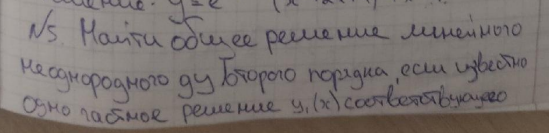 N5. Найти общее решение линейного
неоднородного ду второго порядка, если известно
одно частное решение y₁(x) соответствующего